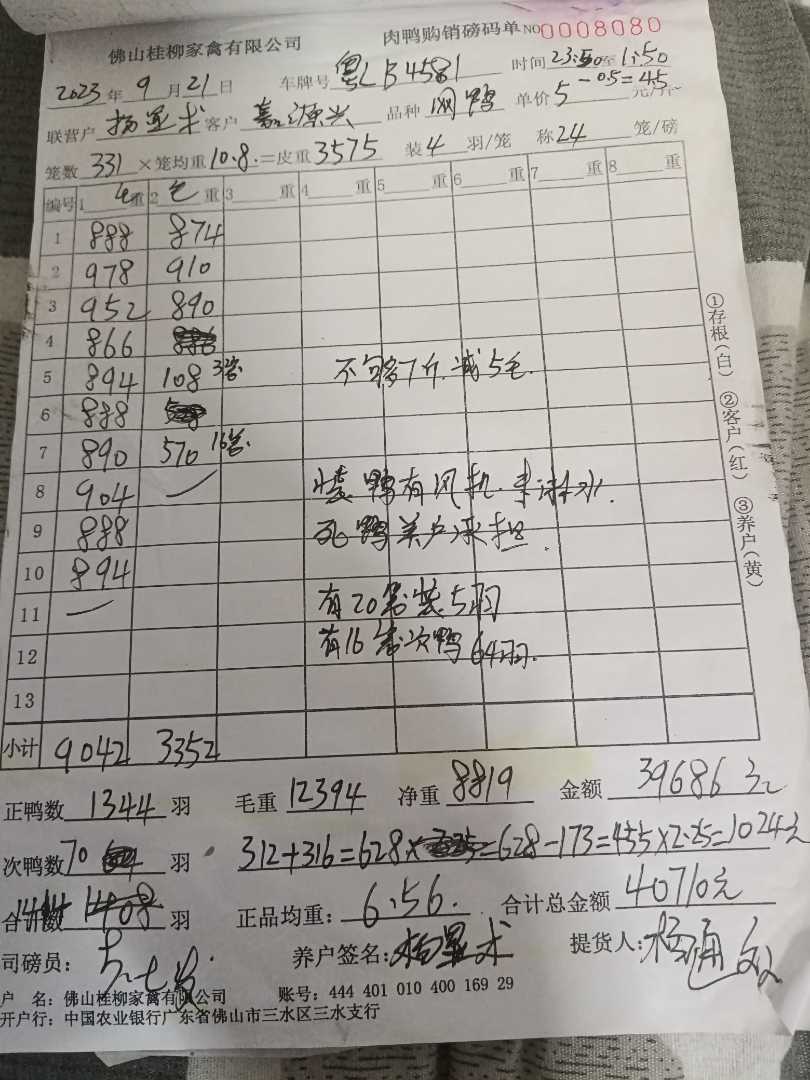 佛山桂柳家禽有限公司 肉鸭购销磅码单 NO 0008080
2023年9月21日 车牌号 粤LB4581 时间 23:50至1:50
联营户 杨显术 客户 嘉源兴 品种 网鸭 单价 5-05=45 元/斤
笼数 331 ×笼均重 10.8.=皮重 3575 装 4 羽/笼 称 24 笼/磅
编号 1 毛重 2 毛重 3 重 4 重 5 重 6 重 7 重 8 重
1 888 874
2 978 910
3 952 890
4 866
5 894 108 3笼 不够7斤.减5毛.
6 888
7 890 570 16笼.
8 904 — 装鸭有风机.淋水.
9 888 死鸭养户承担.
10 894
11 — 有20笼装5羽
12 有16笼次鸭64羽.
13
小计 9042 3352
正鸭数 1344 羽 毛重 12394 净重 8819 金额 39686元
次鸭数 70 羽 312+316=628× =628-173=455×2.25=1024元
合计数 1414 1408 羽 正品均重: 6.56. 合计总金额 40710元
司磅员: 养户签名: 杨显术 提货人: 杨通
户 名: 佛山桂柳家禽有限公司 账号: 444 401 010 400 169 29
开户行: 中国农业银行广东省佛山市三水区三水支行
①存根(白) ②客户(红) ③养户(黄)